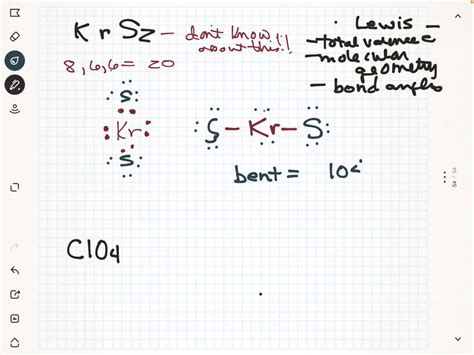 KrS2 - don't know about this!!
8, 6, 6 = 20
:S:
:Kr:
:S:
:S - Kr - S:
bent = 104
ClO4
· Lewis -
- total valence e
- molecular geometry
- bond angles
54 / 55